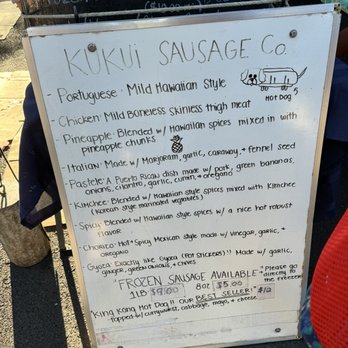 KUKUI SAUSAGE Co.
- Portuguese: Mild Hawaiian Style
HOT DOG
- Chicken: Mild Boneless Skinless thigh meat
- Pineapple: Blended w/ Hawaiian spices mixed in with
pineapple chunks
- Italian: Made w/ Marjoram, garlic, caraway, + fennel seed
- Pastele: A Puerto Rican dish made w/ pork, green bananas,
onions, cilantro, garlic, cumin, + oregano
- Kimchee: Blended w/ Hawaiian style spices mixed with Kimchee
(Korean style marinated vegetables)
- Spicy: Blended w/ Hawaiian style spices w/ a nice hot robust
flavor
- Chorizo: Hot + Spicy Mexican style made w/ vinegar, garlic, +
oregano
- Gyoza: Exactly like Gyoza (Pot Stickers)!! Made w/ garlic,
ginger, green onions, + chives
"FROZEN SAUSAGE AVAILABLE"
1LB $9.00 8oz $5.00
*Please go
directly to
the freezer
"King Kong Hot Dog!! OUR BEST SELLER!" $12
topped w/ cabbage, mayo, + cheese